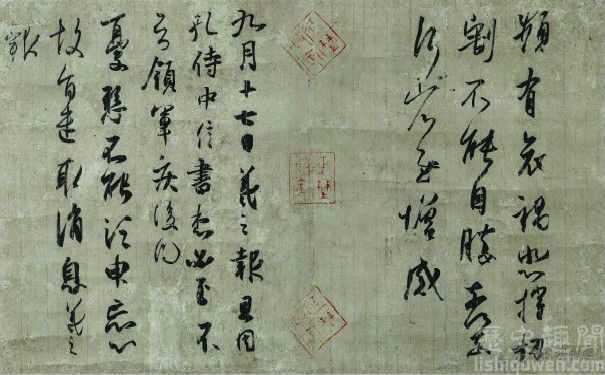 頻有哀禍悲摧切
割不能自勝奈何奈
何省慰增感
九月十七日羲之報且因
孔侍中信書想必至不
知領軍疾後問
憂懸不能須臾忘心
故旨遣取消息羲之
報
歷史趣聞
lishiquwen.com